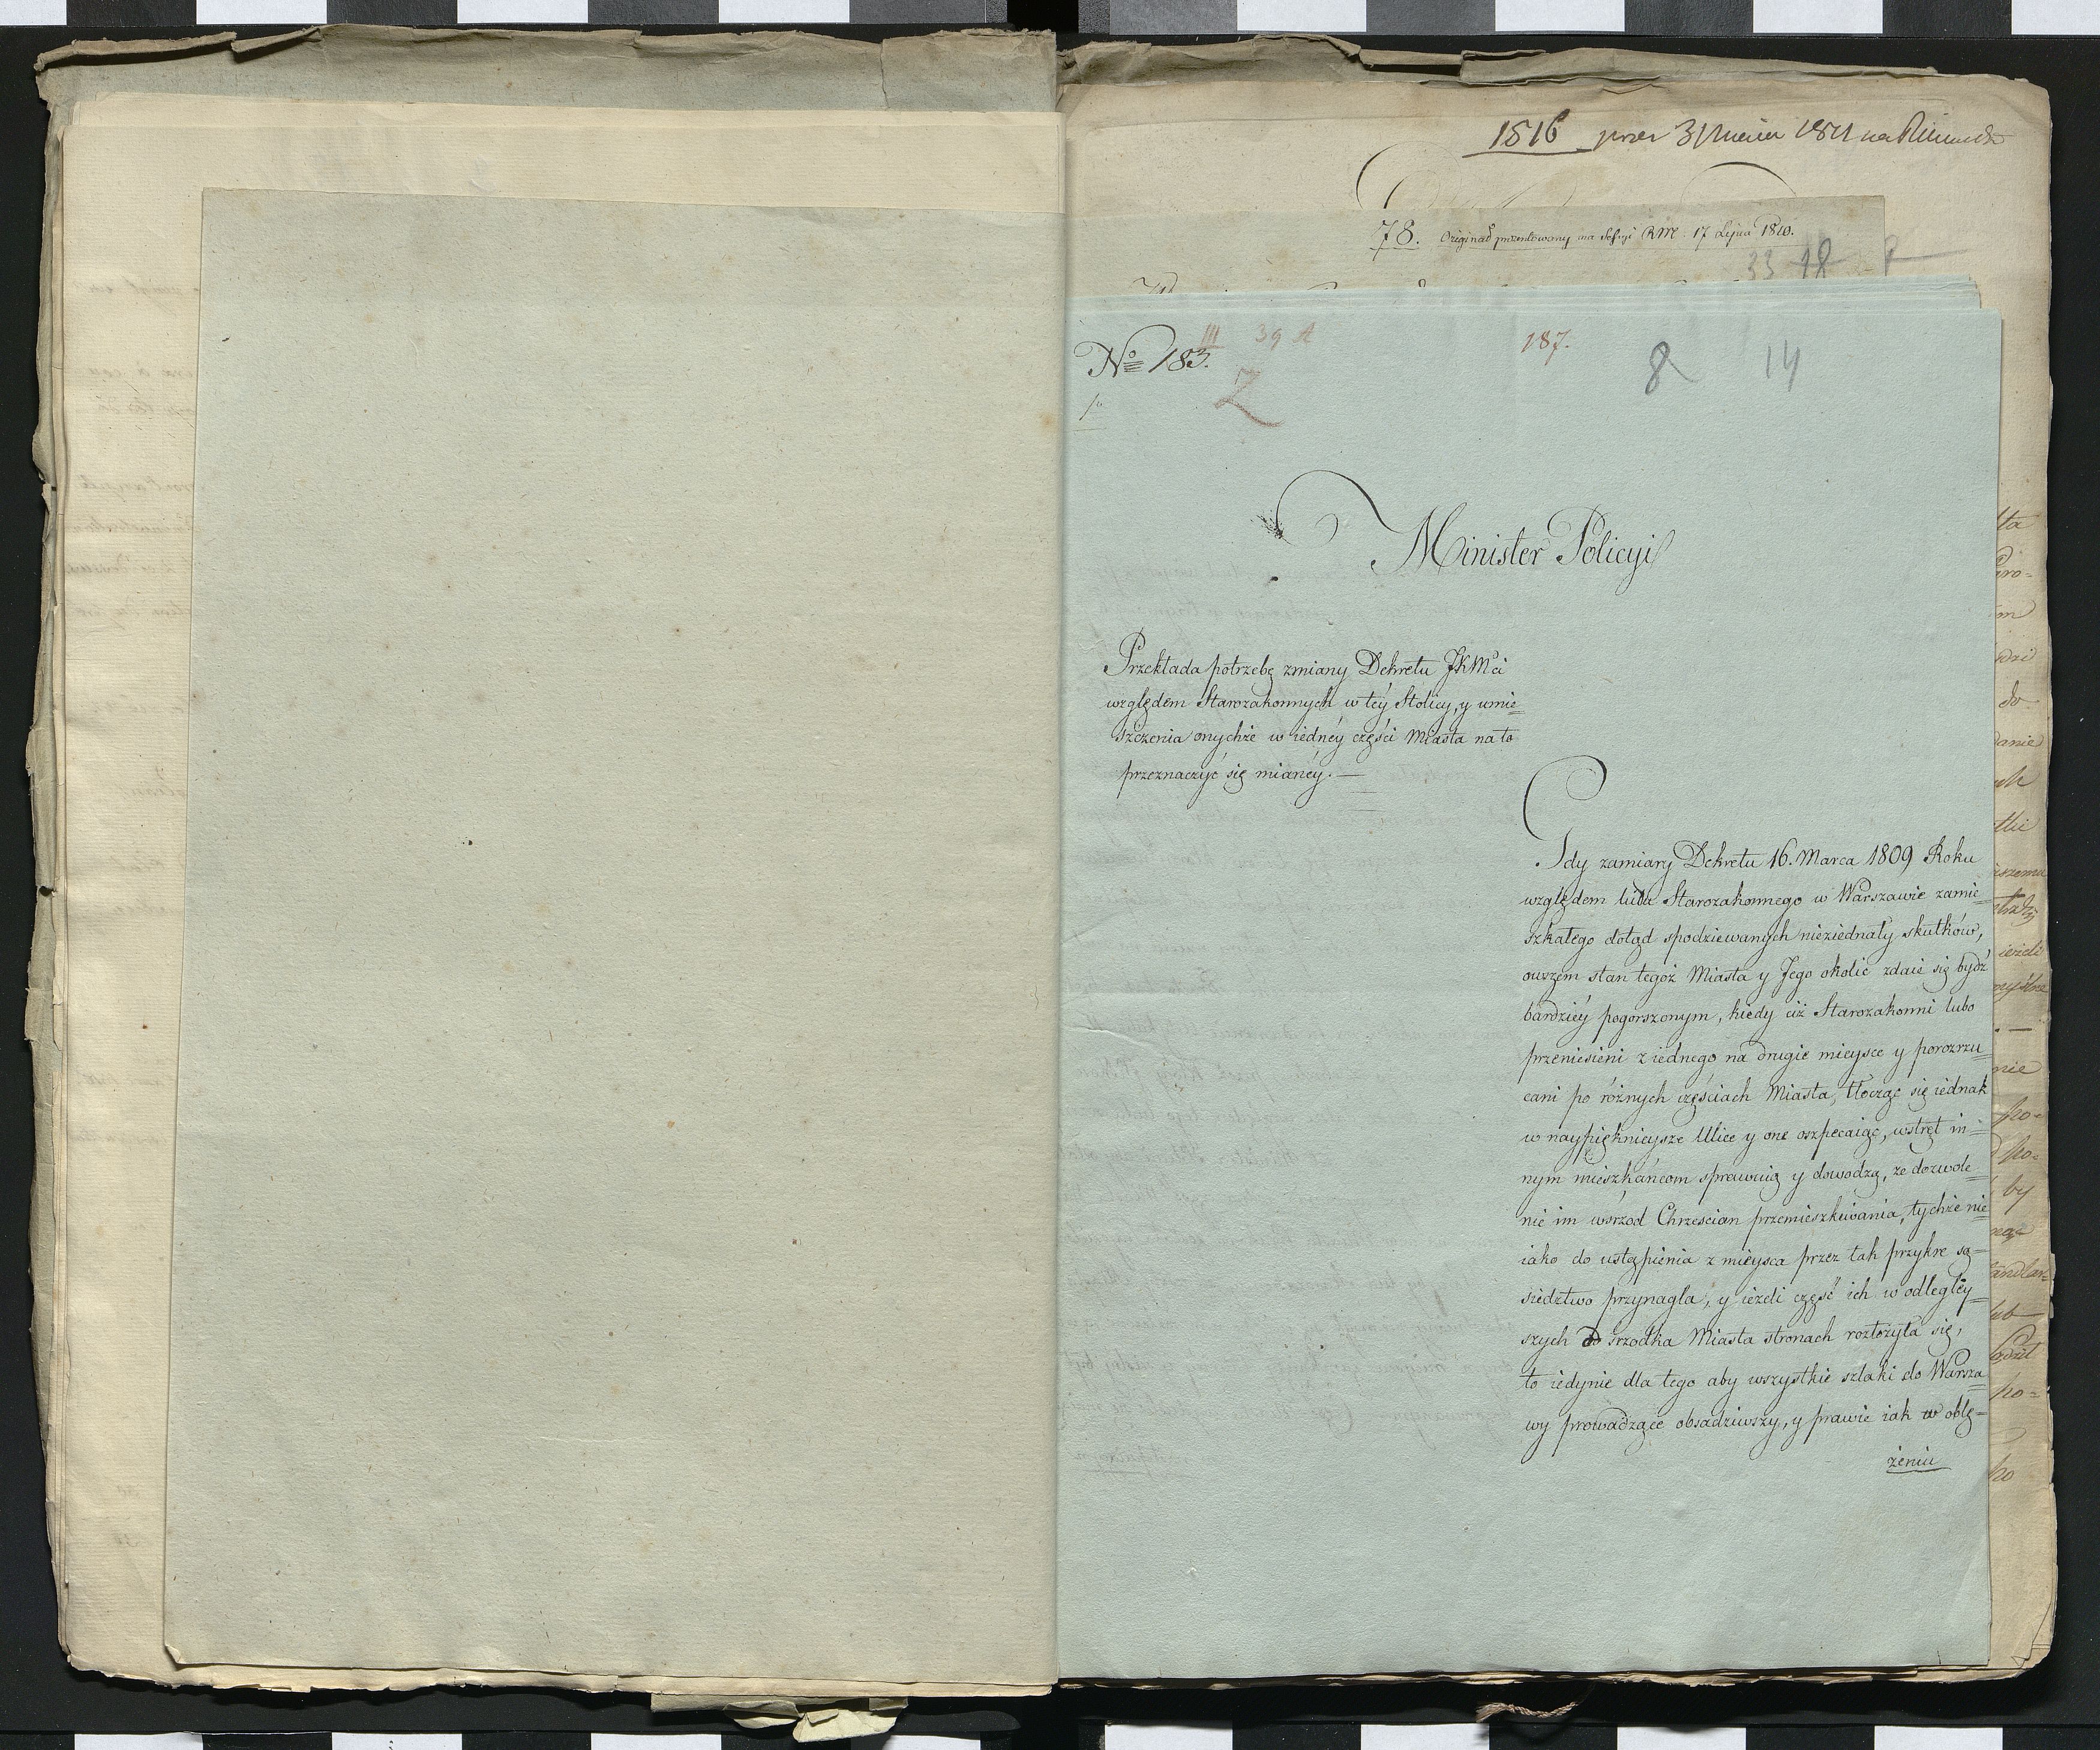 1816 przez
78. Originał prezentowany na Sessyi RM. 17 Lipca 1810.
33 18
III 39 A 187.
No 183. 8 14
2
Minister Policyi
Przekłada potrzebę zmiany Dekretu JKMci
względem Starozakonnych w tey Stolicy, y umie=
szczenia onychże w iednéy części Miasta na to
przeznaczyć się mianéy. —
Gdy zamiary Dekretu 16. Marca 1809 Roku
względem ludu Starozakonnego w Warszawie zamie=
szkałego dotąd spodziewanych nieziednały skutków,
owszem stan tegoż Miasta y Jego okolic zdaie się bydź
bardziéy pogorszonym, kiedy ciż Starozakonni lubo
przeniesieni z iednego na drugie mieysce y porozrzu=
cani po różnych częściach Miasta, tłocząc się iednak
w naypięknieysze Ulice y one oszpecaiąc, wstręt in=
nym mieszkańcom sprawuią y dowodzą, że dozwole=
nie im wsrzod Chrześcian przemieszkiwania, tychże nie=
iako do ustąpienia z mieysca przez tak przykre są=
siedztwo przynagla, y ieżeli część ich w odległéy=
szych od srzodka Miasta stronach rozłożyła się,
to iedynie dla tego aby wszystkie szlaki do Warsza=
wy prowadzące obsadziwszy, y prawie iak w oblę=
żeniu